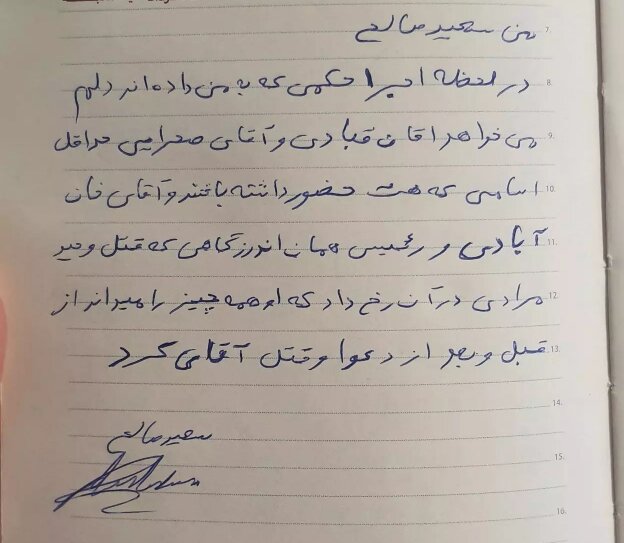 من سعید صالح
در لحظه اجرا حکمی که به من داده‌اند دلم
می خواهد آقای قبادی و آقای صحرایی حداقل
اسامی که هست حضور داشته باشند و آقای خان
آبادی و رئیس همان اندرزگاهی که قتل وحید
مرادی در آن رخ داد که او همه چیز را میداند از
قبل و بعد از دعوا و قتل آقای کرد
سعید صالح
7.
8.
9.
10.
11.
12.
13.
14.
15.
16.